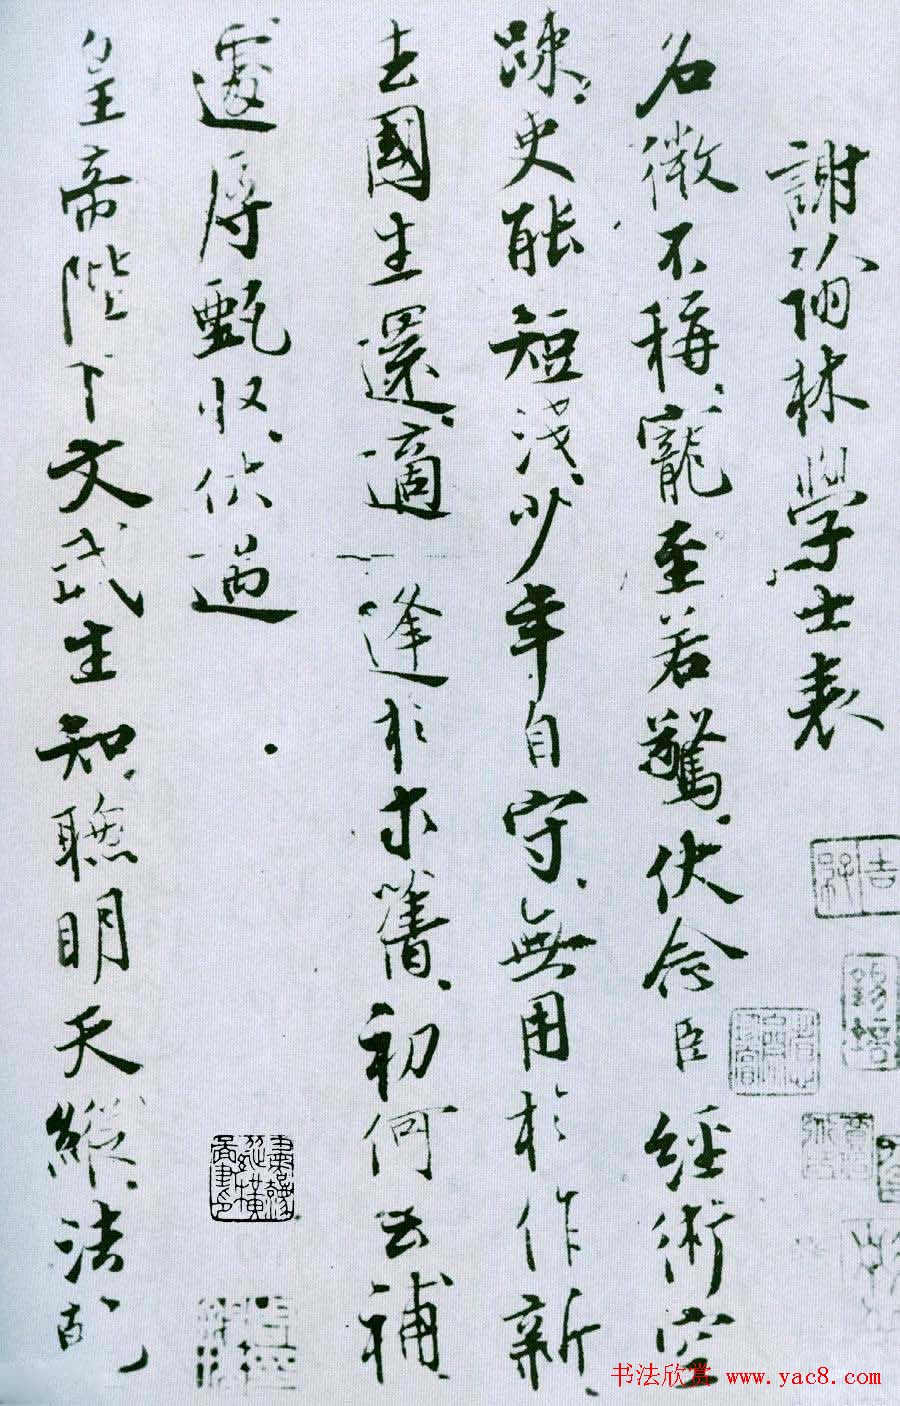 謝翰林學士表
名微不稱寵至若驚伏念臣經術空
疎吏能短淺少年自守無用於作新
去國生還適逢於求舊初何云補
遽辱甄収伏遇
皇帝陛下文武生知聰明天縱法乾
书法欣赏 www.yac8.com